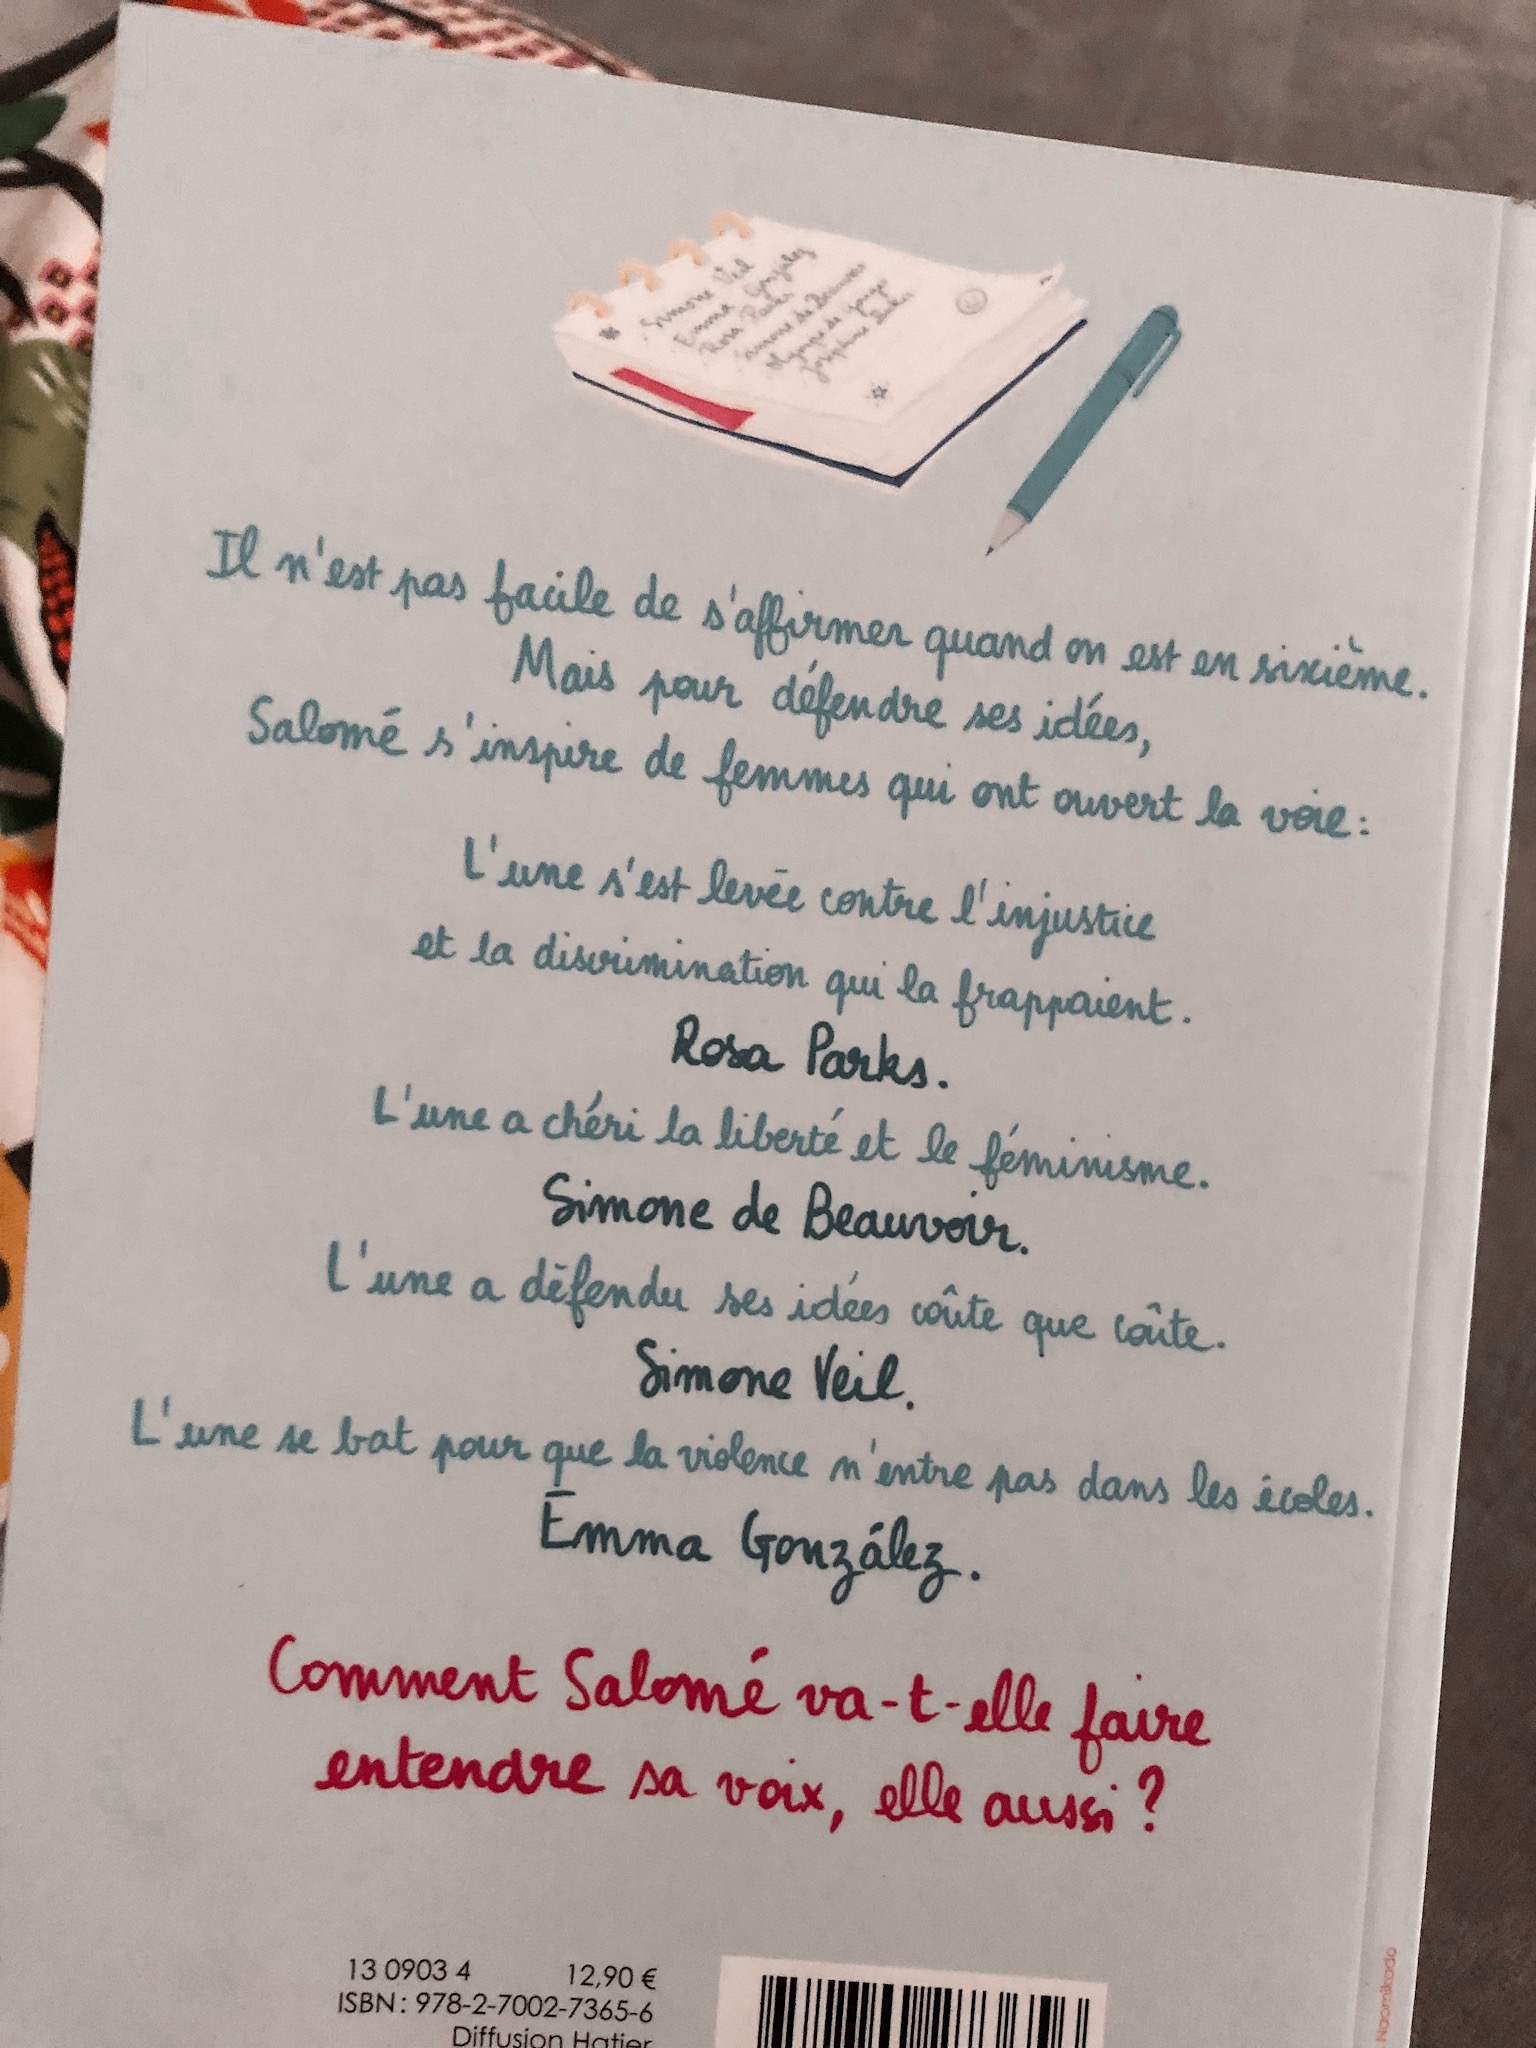 Simone Veil
Emma González
Rosa Parks
Simone de Beauvoir
Olympe de Gouges
Il n'est pas facile de s'affirmer quand on est en sixième.
Mais pour défendre ses idées,
Salomé s'inspire de femmes qui ont ouvert la voie :
L'une s'est levée contre l'injustice
et la discrimination qui la frappaient.
Rosa Parks.
L'une a chéri la liberté et le féminisme.
Simone de Beauvoir.
L'une a défendu ses idées coûte que coûte.
Simone Veil.
L'une se bat pour que la violence n'entre pas dans les écoles.
Emma González.
Comment Salomé va-t-elle faire
entendre sa voix, elle aussi ?
13 0903 4 12,90 €
ISBN : 978-2-7002-7365-6
Diffusion Hatier
Naomikado